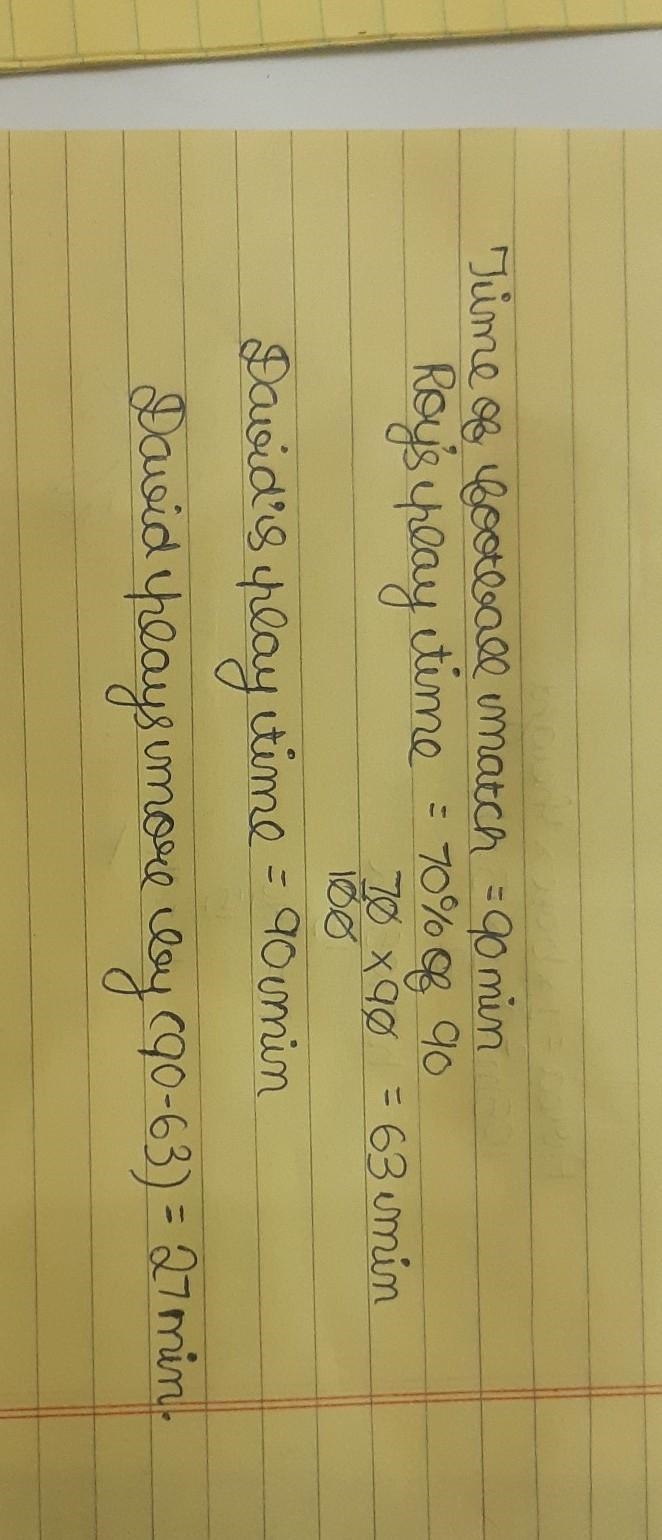 Time of football match = 90 min
Roy's play time = 70% of 90
70/100 × 90 = 63 min
David's play time = 90 min
David plays more by (90-63) = 27 min.